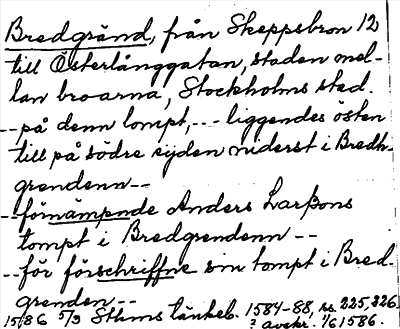 Bredgränd, från Skeppsbron 12
till Österlånggatan, staden mel-
lan broarna, Stockholms stad.
-- på denn tompt, --- liggendes östen
till på södre syden niderst i Bredh-
grendenn --
-- förnämpnde Anders Larßons
tompt i Bredgrendenn --
-- för förschriffne sin tompt i Bred-
grenden --
1586 5/9 Sthms tänkeb. 1584-88, ss. 225, 226.
? avskr. 1/6 1586.